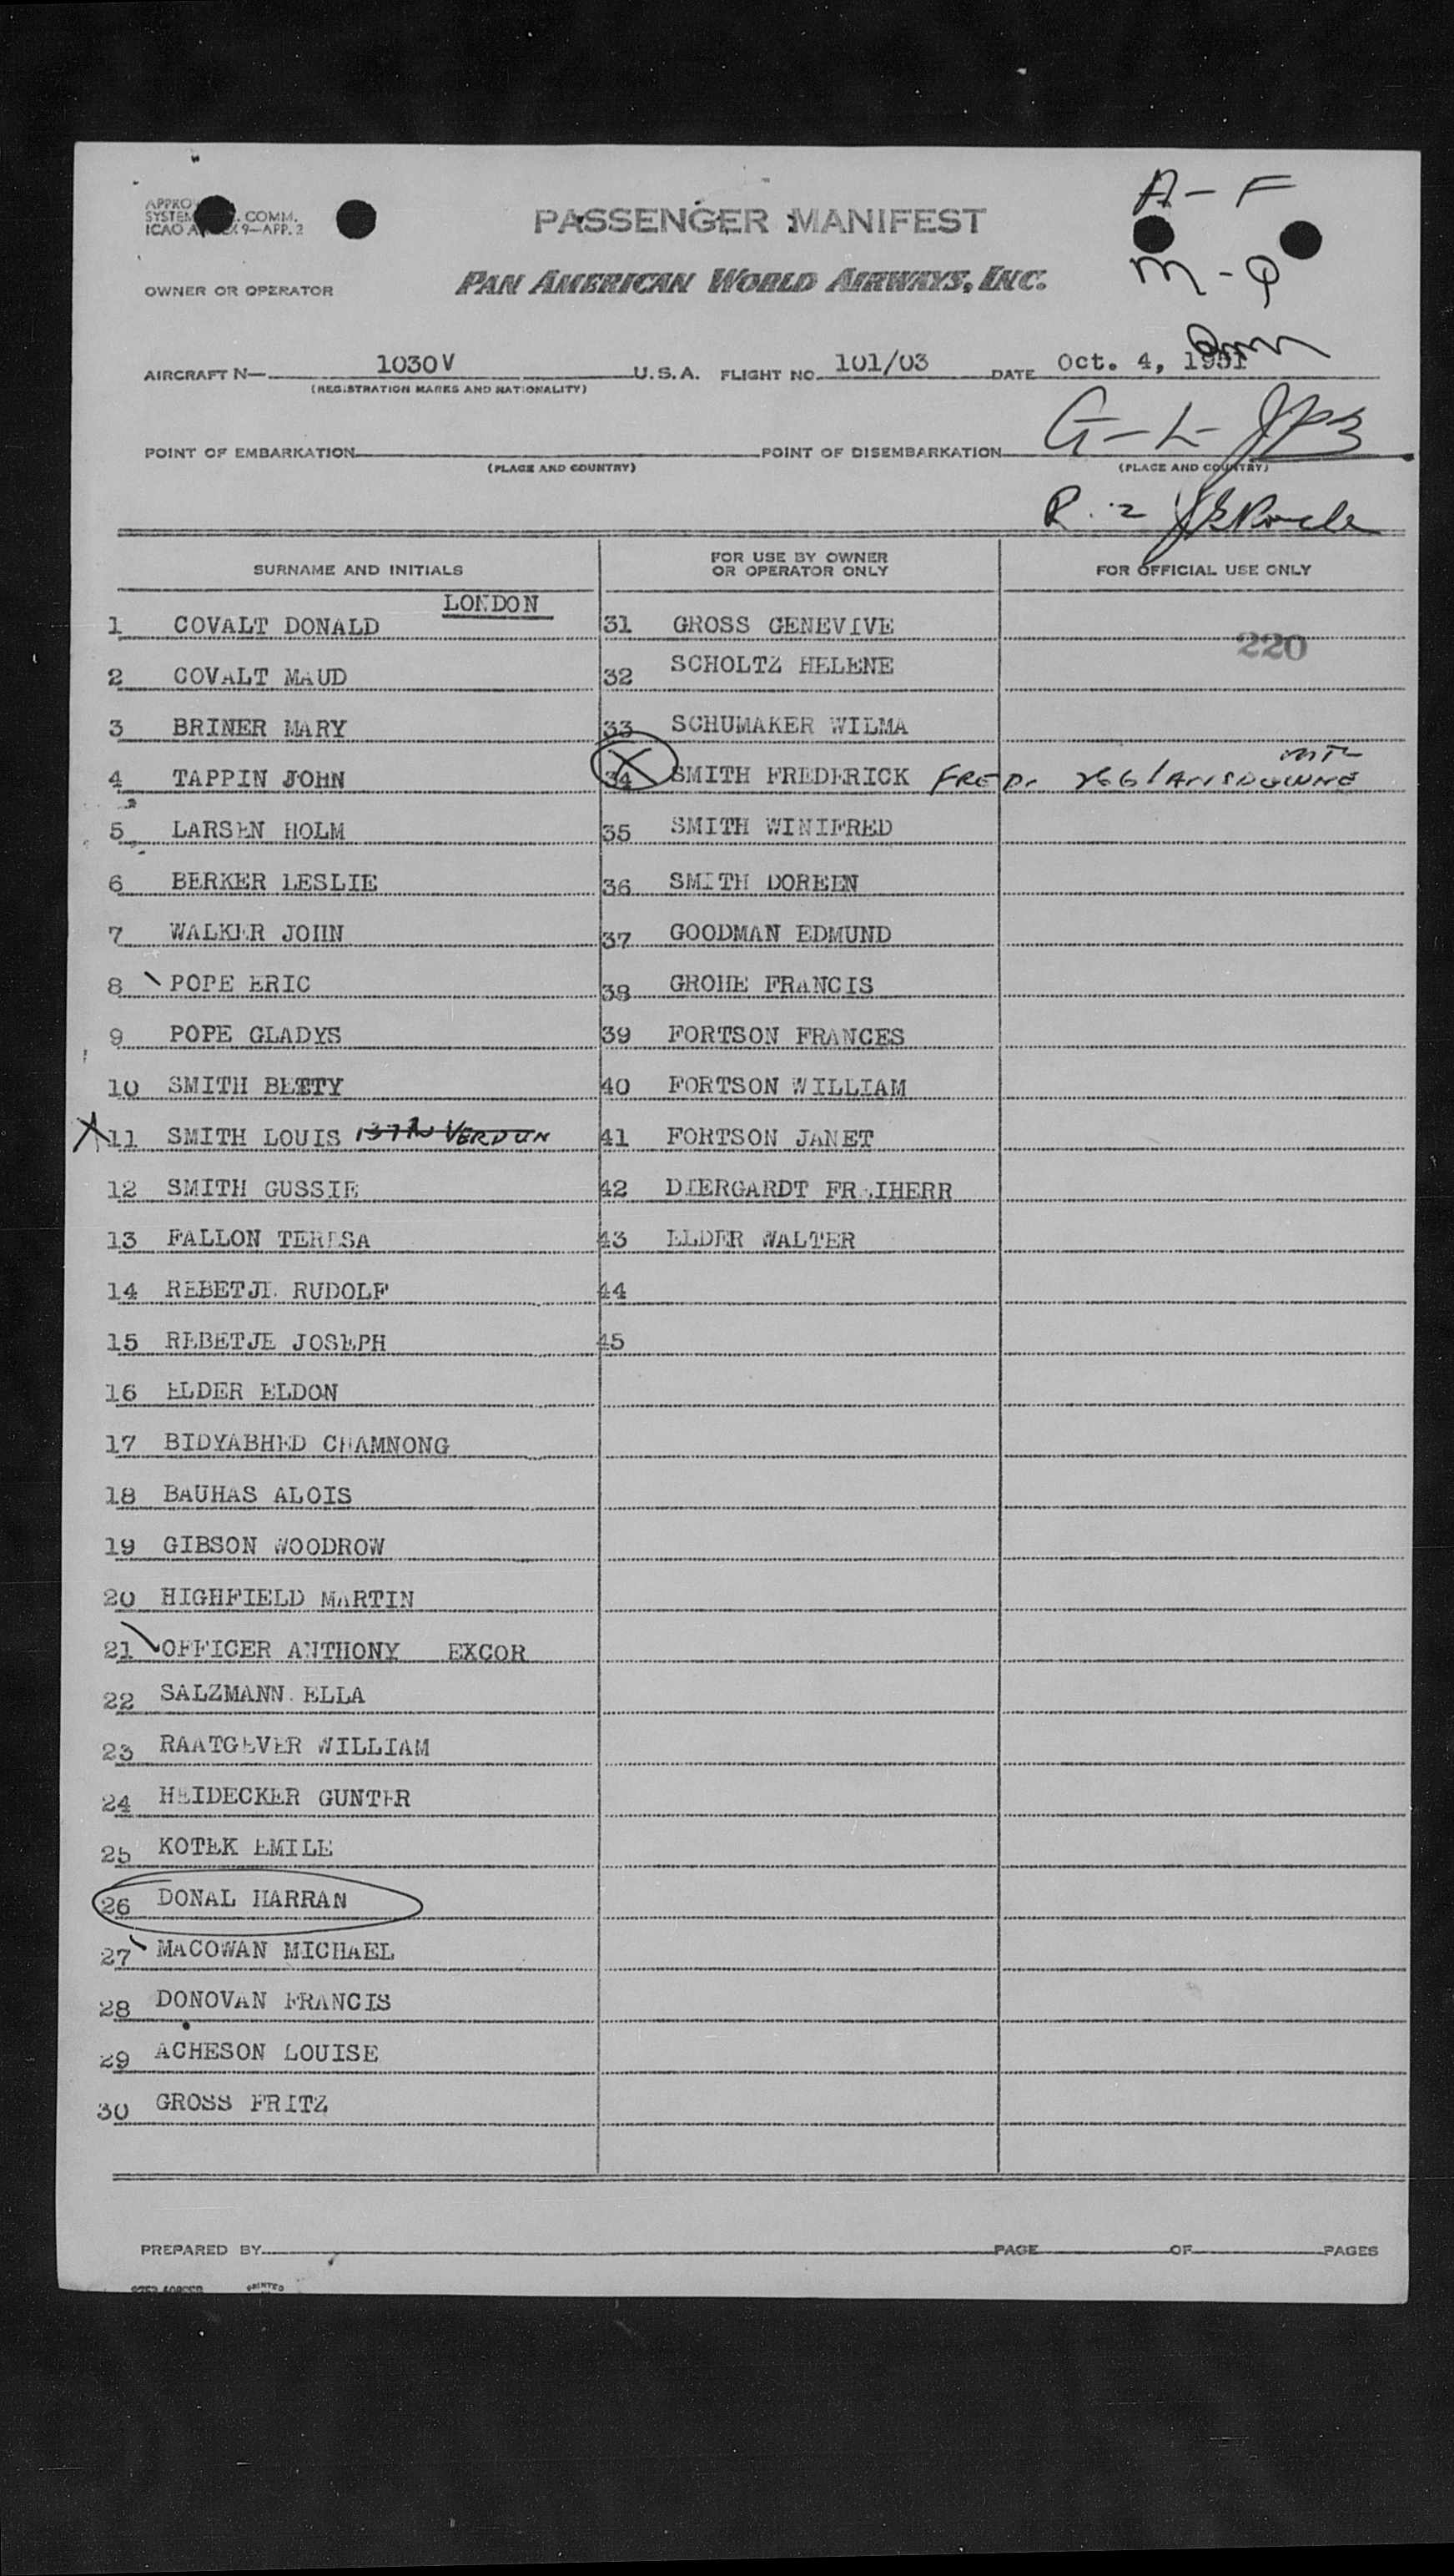 A-F
PASSENGER MANIFEST
SYSTEM COMM.
ICAO 9-APP. 2
M-Q
OWNER OR OPERATOR
PAN AMERICAN WORLD AIRWAYS, INC.
AIRCRAFT N- 1030V U.S.A. FLIGHT NO. 101/03 DATE Oct. 4, 1951
(REGISTRATION MARKS AND NATIONALITY)
G-L- JPB
POINT OF EMBARKATION POINT OF DISEMBARKATION
(PLACE AND COUNTRY) (PLACE AND COUNTRY)
R-Z
SURNAME AND INITIALS FOR USE BY OWNER OR OPERATOR ONLY FOR OFFICIAL USE ONLY
LONDON
1 COVALT DONALD 31 GROSS GENEVIVE 220
2 COVALT MAUD 32 SCHOLTZ HELENE
3 BRINER MARY 33 SCHUMAKER WILMA
4 TAPPIN JOHN 34 SMITH FREDERICK FRED. 266 LANSDOWNE MTL
5 LARSEN HOLM 35 SMITH WINIFRED
6 BERKER LESLIE 36 SMITH DOREEN
7 WALKER JOHN 37 GOODMAN EDMUND
8 POPE ERIC 38 GROHE FRANCIS
9 POPE GLADYS 39 FORTSON FRANCES
10 SMITH BETTY 40 FORTSON WILLIAM
X 11 SMITH LOUIS VERDUN 41 FORTSON JANET
12 SMITH GUSSIE 42 DIERGARDT FREIHERR
13 FALLON TERESA 43 ELDER WALTER
14 REBETJE RUDOLF 44
15 REBETJE JOSEPH 45
16 ELDER ELDON
17 BIDYABHED CHAMNONG
18 BAUHAS ALOIS
19 GIBSON WOODROW
20 HIGHFIELD MARTIN
21 OFFICER ANTHONY EXCOR
22 SALZMANN ELLA
23 RAATGEVER WILLIAM
24 HEIDECKER GUNTER
25 KOTEK EMILE
26 DONAL HARRAN
27 MACOWAN MICHAEL
28 DONOVAN FRANCIS
29 ACHESON LOUISE
30 GROSS FRITZ
PREPARED BY PAGE OF PAGES
PRINTED